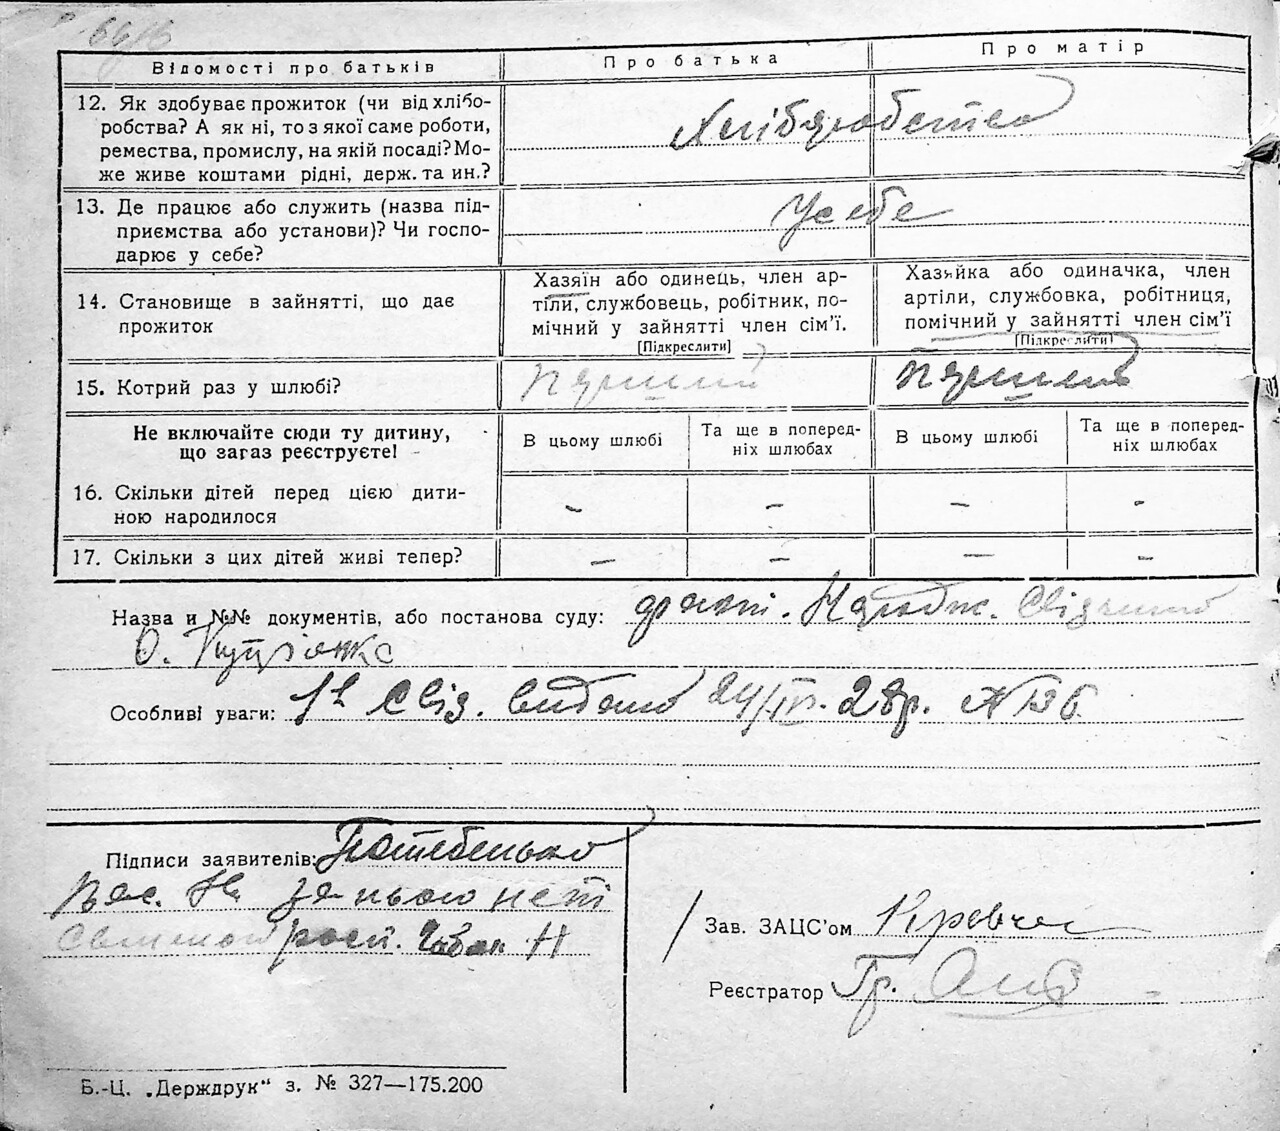 64/6
Відомості про батьків
Про батька
Про матір
12. Як здобуває прожиток (чи від хлібо-
робства? А як ні, то з якої саме роботи,
ремества, промислу, на якій посаді? Мо-
же живе коштами рідні, держ. та ин.?
Хліборобство
13. Де працює або служить (назва під-
приємства або установи)? Чи госпо-
дарює у себе?
У себе
14. Становище в зайнятті, що дає
прожиток
Хазяїн або одинець, член ар-
тіли, службовець, робітник, по-
мічний у зайнятті член сім'ї.
[Підкреслити]
Хазяйка або одиначка, член
артіли, службовка, робітниця,
помічний у зайнятті член сім'ї
[Підкреслити]
15. Котрий раз у шлюбі?
Перший
Перший
Не включайте сюди ту дитину,
що загаз реєструєте!
В цьому шлюбі
Та ще в поперед-
ніх шлюбах
В цьому шлюбі
Та ще в поперед-
ніх шлюбах
16. Скільки дітей перед цією дити-
ною народилося
– – – -
17. Скільки з цих дітей живі тепер?
– – – –
Назва и №№ документів, або постанова суду:
Особливі уваги: Свід. видано 24/IV. 28р. № 136
Підписи заявителів: Потебенько
за нього
Зав. ЗАЦС'ом
Реєстратор Гр.
Б.-Ц. „Держдрук" з. № 327—175.200